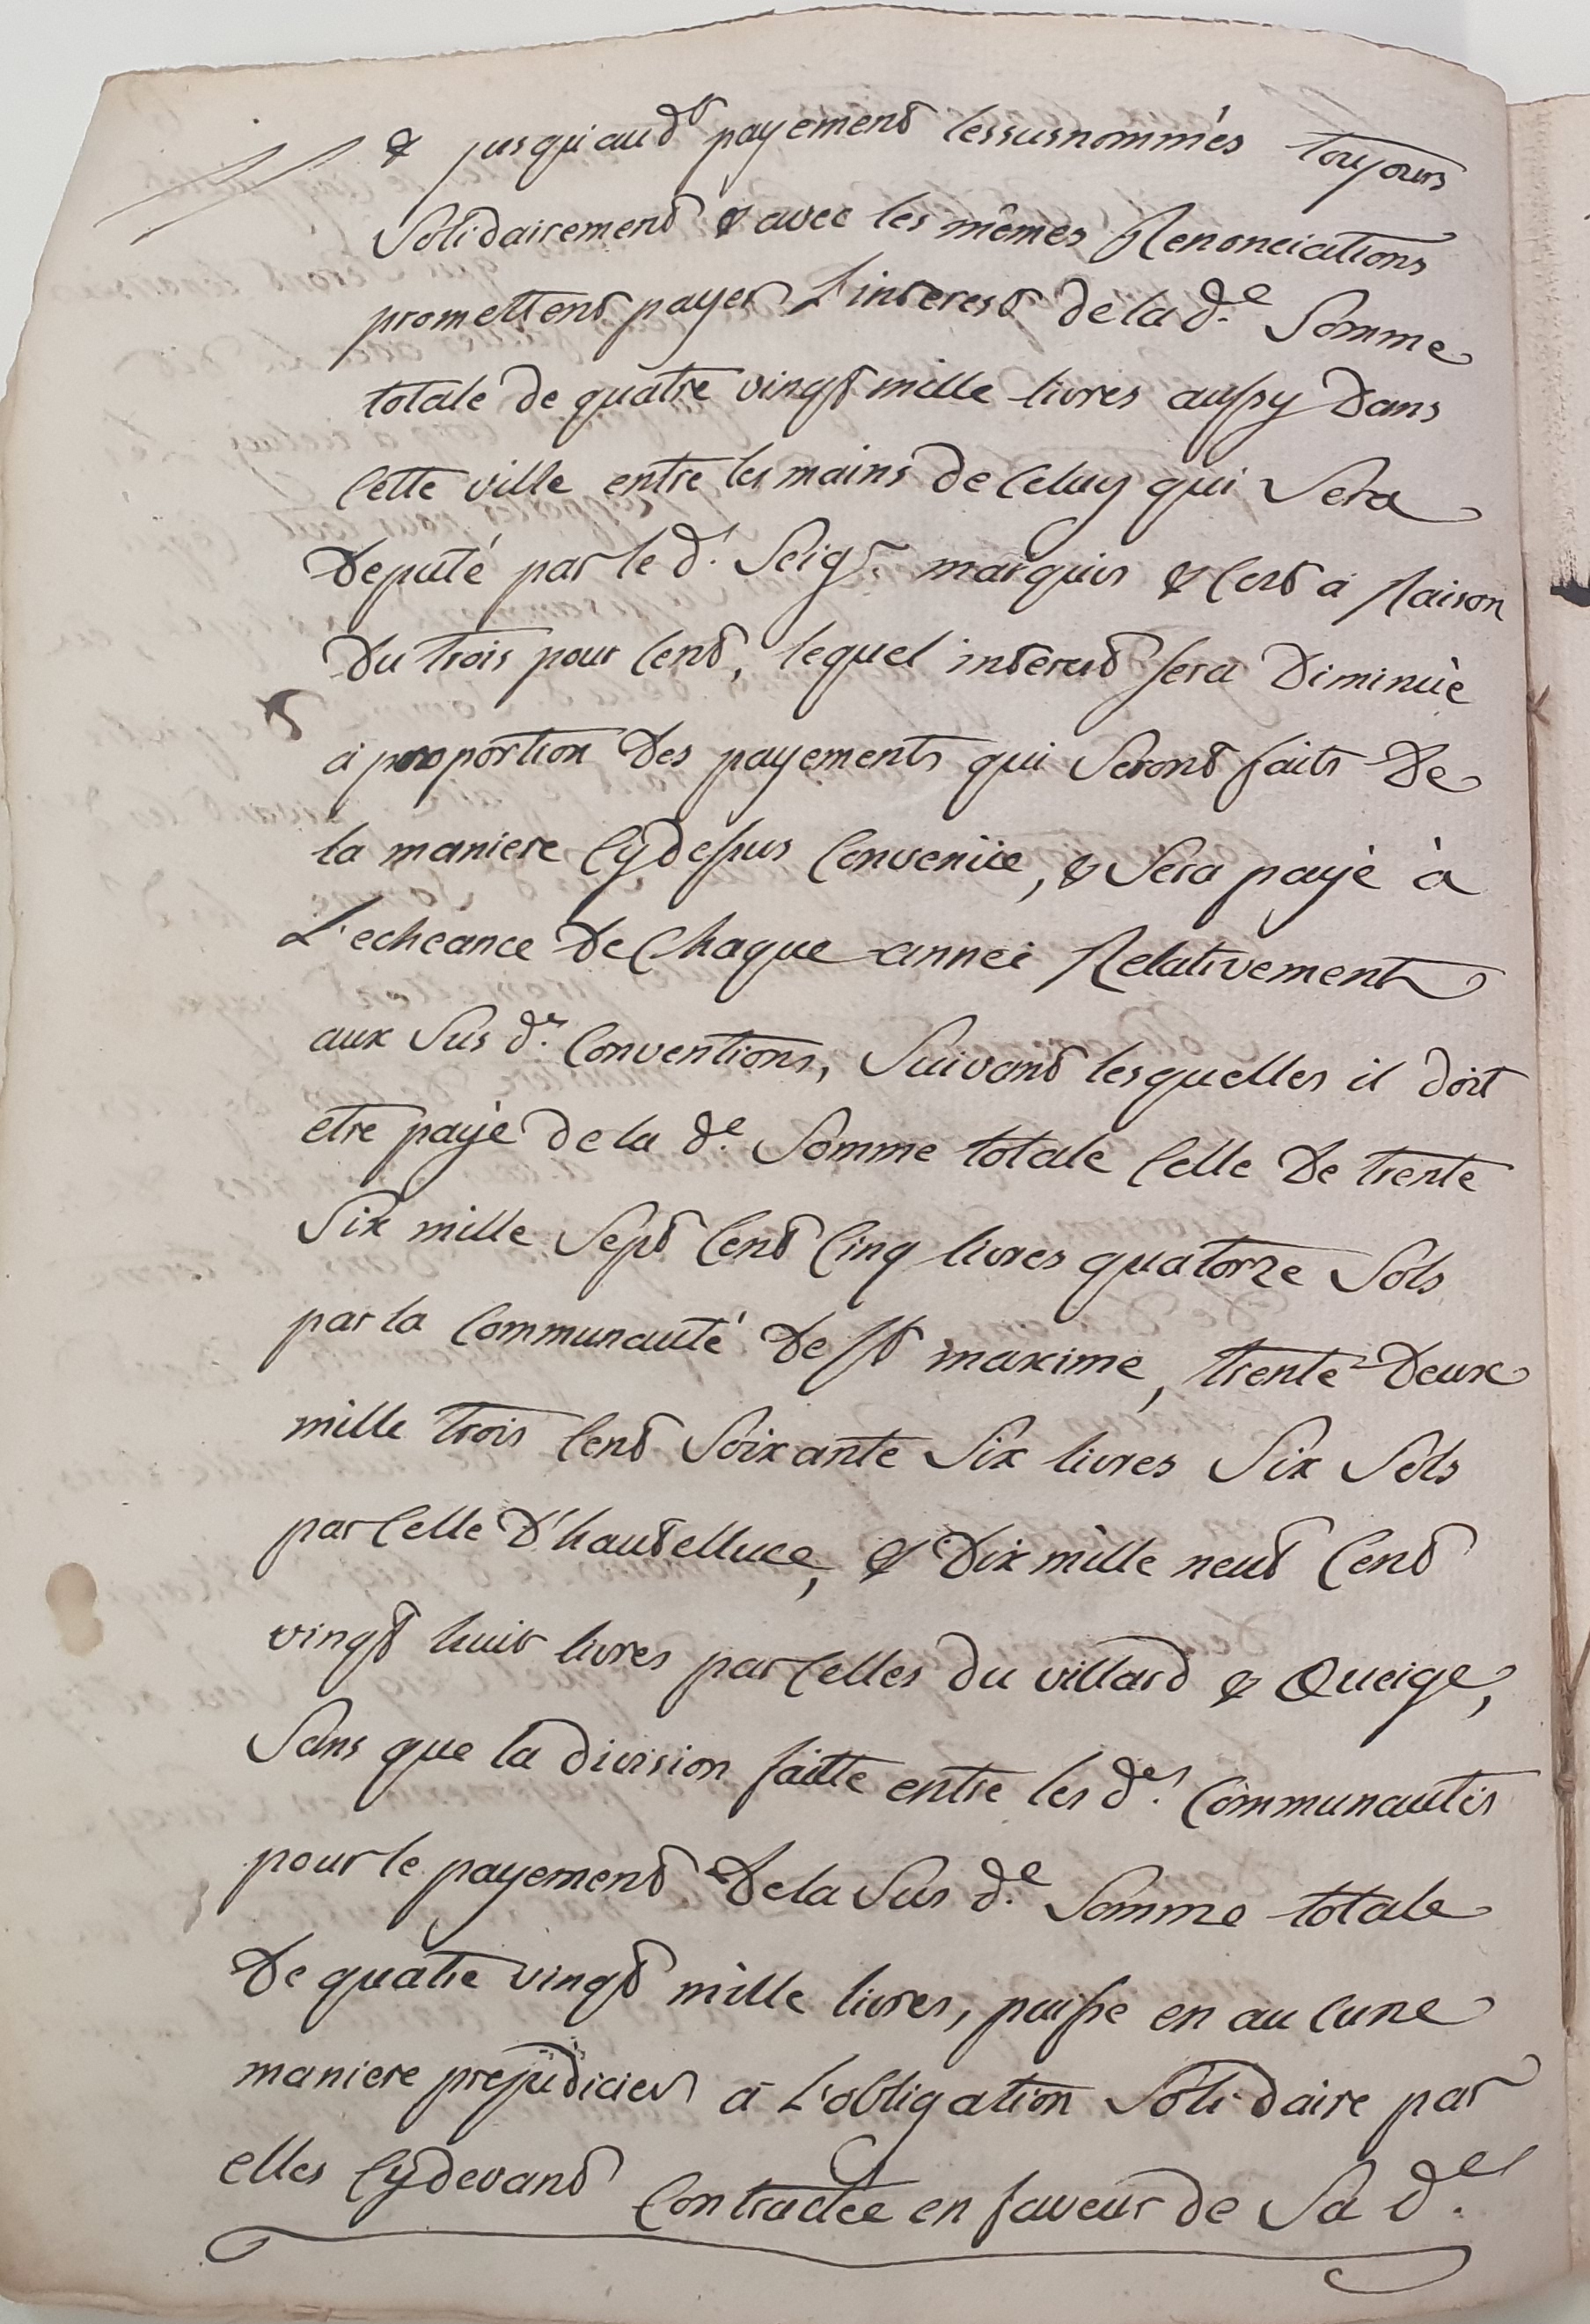 & jusqu'aud.t payement lessusnommés toujours
Solidairement & avec les mêmes Renonciations
promettent payer L'interest de la d.e Somme
totale de quatre vingt mille livres aussy dans
cette ville entre les mains de celuy qui Sera
Deputé par le d.t Seig.r marquis & cest à Raison
Du trois pour cent, lequel interest sera Diminüé
à proportion des payements qui Seront faits de
la maniere cydessus convenüe, & Sera payé à
L'echéance de chaque année Relativement
aux Sus d.es conventions, Suivant lesquelles il doit
etre payé de la d.e Somme totale celle De trente
Six mille Sept cent cinq livres quatorze Sols
par la communauté de St maxime, trente Deux
mille trois cent Soixante Six livres Six Sols
par celle D'hautelluce, & Dix mille neuf cent
vingt huit livres par celles du villard & Queige,
Sans que la division faitte entre les d.es communautés
pour le payement de la Sus d.e Somme totale
De quatre vingt mille livres, puisse en aucune
maniere prejudicier à L'obligation Solidaire par
elles cydevant contractée en faveur de Sa d.e